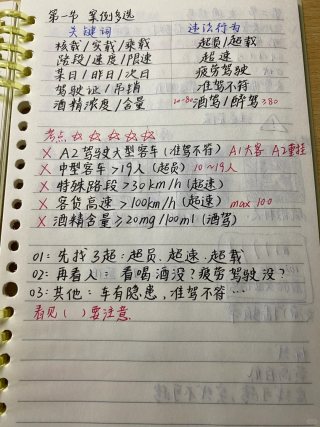 第一节 案例多选
关键词 违法行为
核载/实载/乘载 超员/超载
路段/速度/限速 超速
某日/昨日/次日 疲劳驾驶
驾驶证/吊销 准驾不符
酒精浓度/含量 20-80 酒驾/醉驾 ≥80
考点 ☆ ☆ ☆ ☆ ☆
× A2驾驶大型客车(准驾不符) A1大客 A2重挂
× 中型客车>19人(超员) 10~19人
× 特殊路段>30km/h(超速)
× 客货高速>100km/h(超速) max 100
× 酒精含量≥20mg/100ml(酒驾)
01: 先找3超: 超员、超速、超载
02: 再看人: 看喝酒没? 疲劳驾驶没?
03: 其他: 车有隐患, 准驾不符…
看见( )要注意